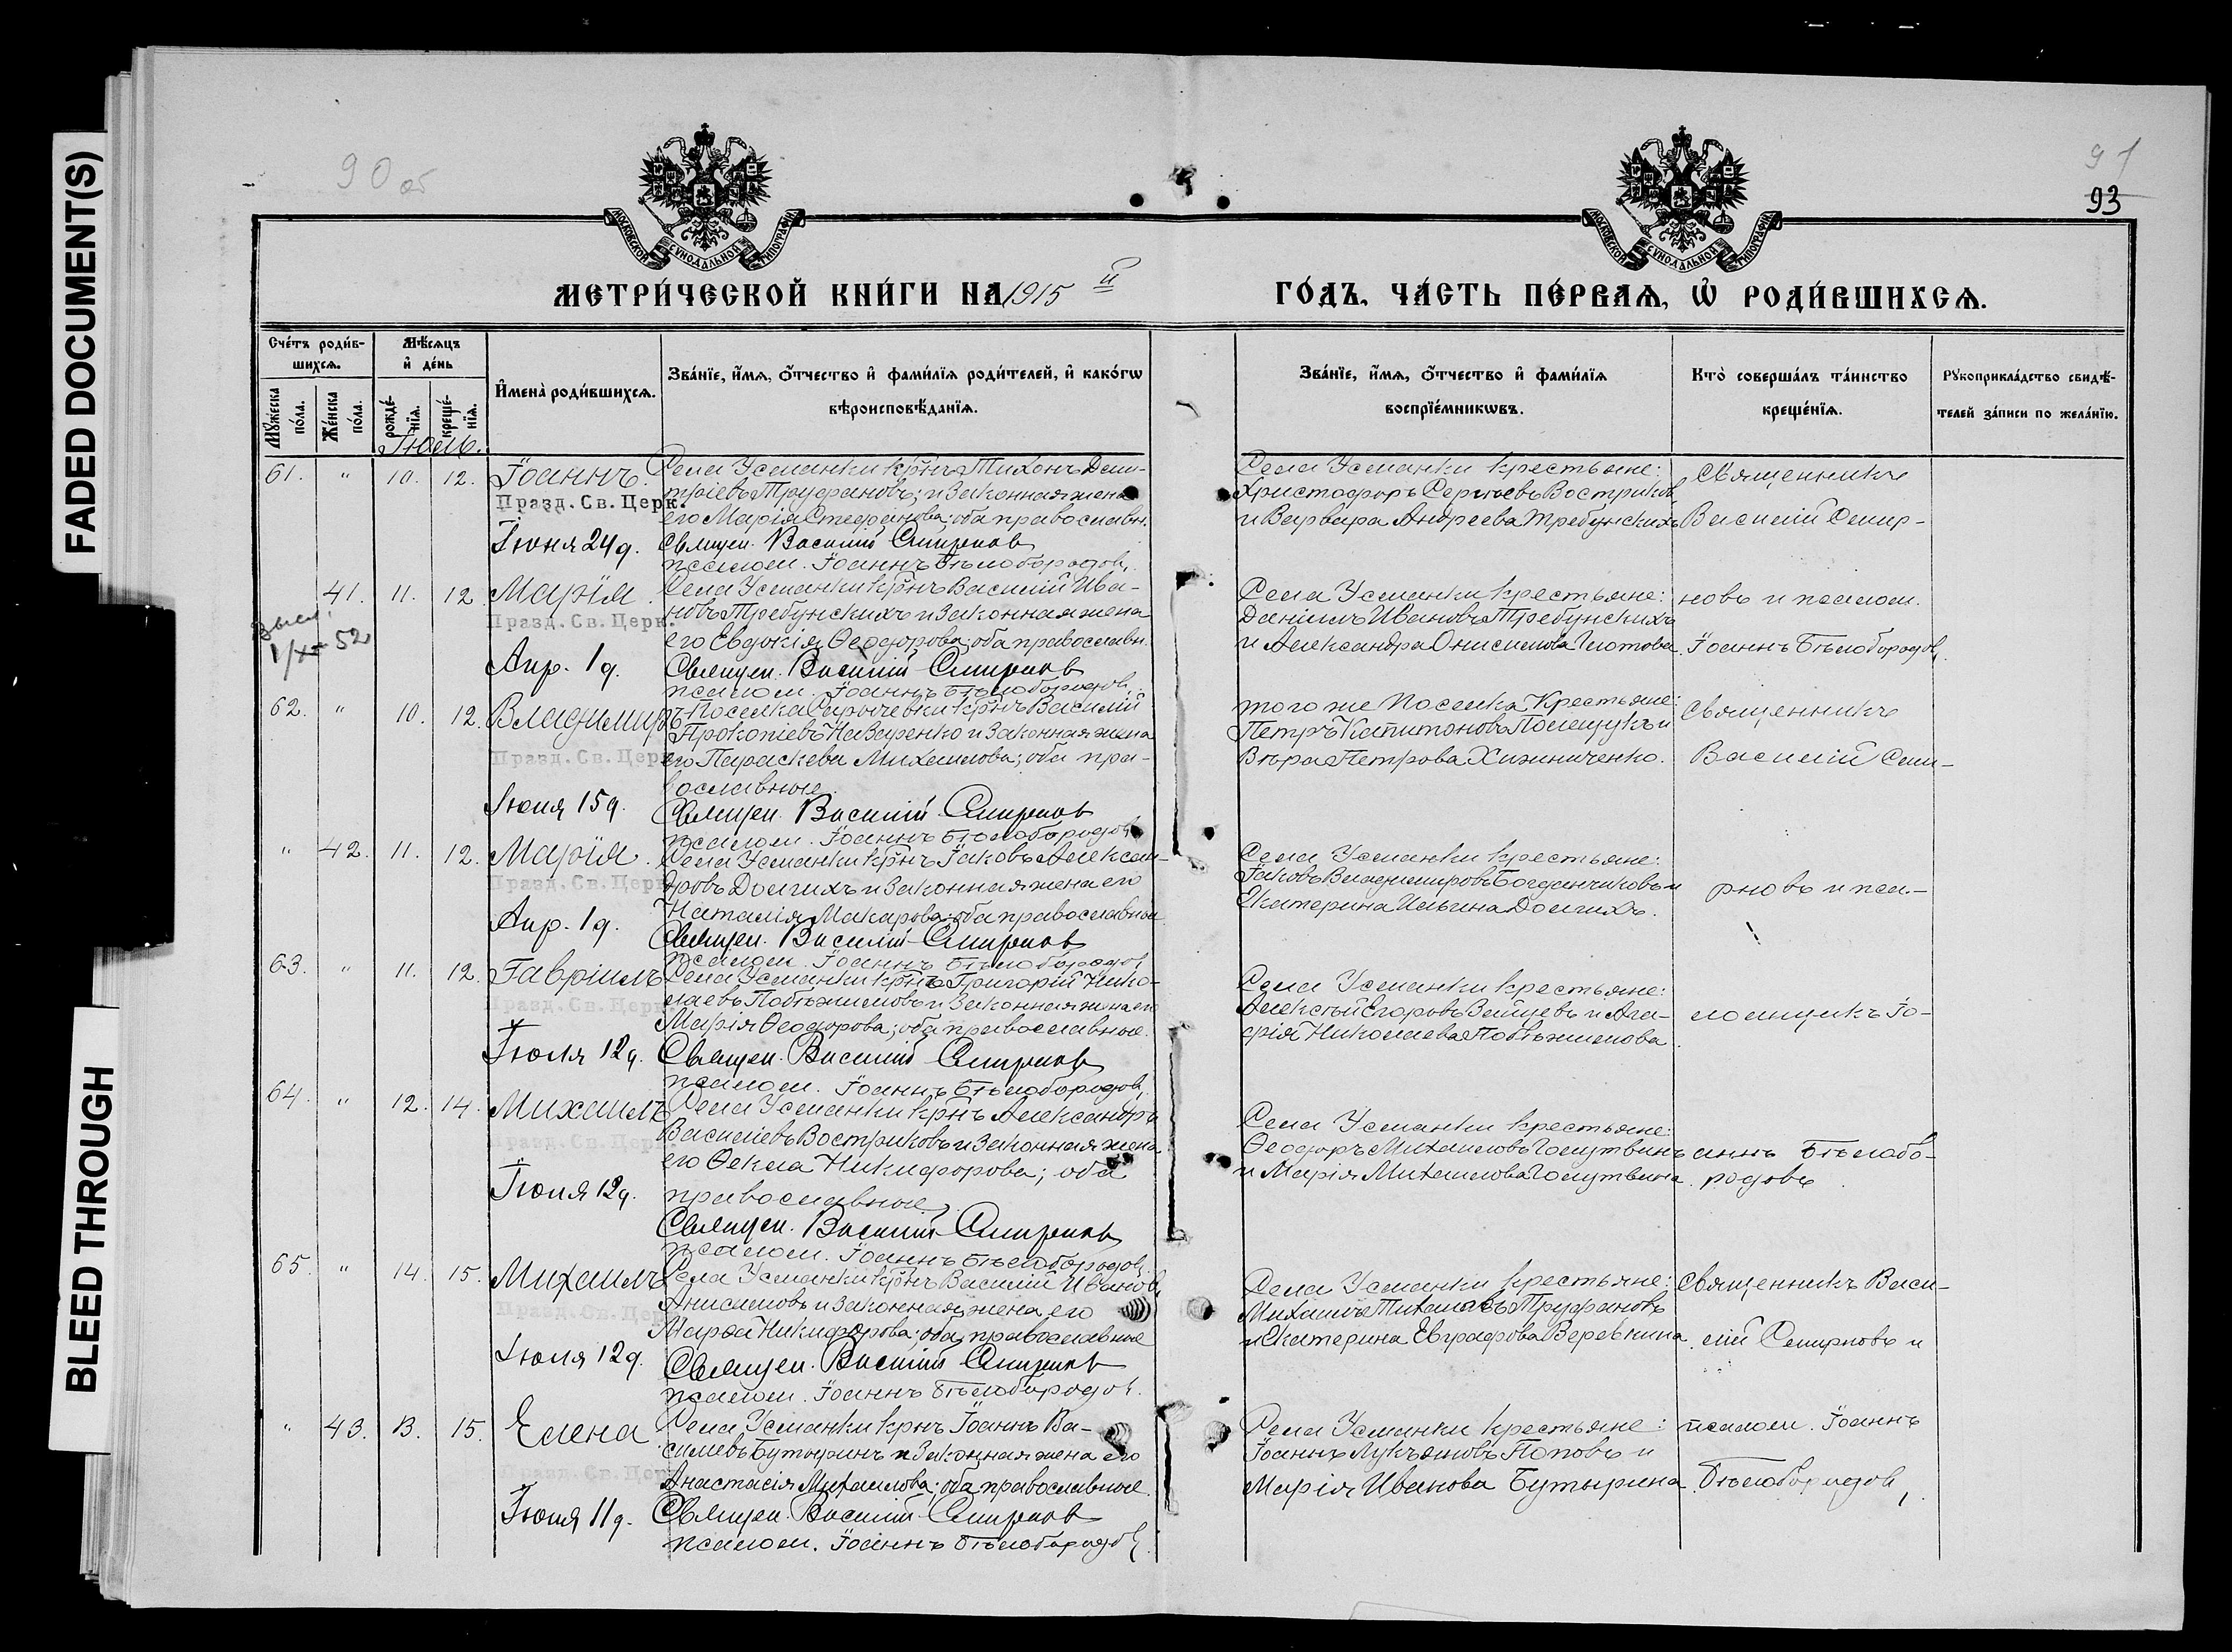 FADED DOCUMENT(S)
BLEED THROUGH
90 об
91
93
МОСКОВСКОЙ СѴНОДАЛЬНОЙ ТИПОГРАФІИ
МОСКОВСКОЙ СѴНОДАЛЬНОЙ ТИПОГРАФІИ
МЕТРИ́ЧЕСКОЙ КНИ́ГИ НА 1915 й
ГО́ДЪ, ЧА́СТЬ ПЕ́РВАѦ, Ѡ҆ РОДИ́ВШИХСѦ.
Сче́тъ роди́в-
шихсѧ.
Мꙋ́жеска по́ла.
Же́нска по́ла.
Мѣ́сѧцъ
и҆ де́нь
рожде́-
нїѧ.
креще́-
нїѧ.
И҆мена̀ роди́вшихсѧ.
Зва́нїе, и҆́мѧ, ѻ҆́тчество и҆ фами́лїѧ роди́телей, и҆ како́гѡ
вѣроисповѣ́данїѧ.
Зва́нїе, и҆́мѧ, ѻ҆́тчество и҆ фами́лїѧ
воспрїе́мникѡвъ.
Кто̀ соверша́лъ та́инство
креще́нїѧ.
Рꙋкоприкла́дство свидѣ́-
телей за́писи по жела́нїю.
Іюль.
61. " 10. 12. Іоаннъ.
Празд. Св. Церк.
Іюня 24 д.
Села Усманки крнъ Тихонъ Дими-
тріевъ Труфановъ; и законная жена
его Марія Стефанова; оба православн.
Священ. Василій Смирновъ
псалом. Іоаннъ Бѣлобородовъ.
Села Усманки крестьяне:
Христофоръ Сергѣевъ Востриковъ
и Варвара Андреева Требунскихъ
Священникъ
Василій Смир-
41. 11. 12. Марія.
1/XI-52
Празд. Св. Церк.
Апр. 1 д.
Села Усманки крнъ Василій Ива-
новъ Требунскихъ и законная жена
его Евдокія Ѳеодорова; оба православн.
Священ. Василій Смирновъ
псалом. Іоаннъ Бѣлобородовъ.
Села Усманки крестьяне:
Даніилъ Ивановъ Требунскихъ
и Александра Онисимова Глотова.
новъ и псалом.
Іоаннъ Бѣлобородовъ.
62. " 10. 12. Владимиръ
Празд. Св. Церк.
Іюля 15 д.
Поселка Сыычевки крнъ Василій
Прокопіевъ Назаренко и законная жена
его Параскева Михаилова; оба пра-
вославные.
Священ. Василій Смирновъ
псалом. Іоаннъ Бѣлобородовъ
того же Поселка Крестьяне:
Петръ Капитоновъ Полещукъ и
Вѣра Петрова Хижниченко.
Священникъ
Василій Сми-
" 42. 11. 12. Марія.
Празд. Св. Церк.
Апр. 1 д.
Села Усманки крнъ Іаковъ Алексан-
дровъ Долгихъ и законная жена его
Наталія Макарова; оба православные
Священ. Василій Смирновъ
псалом. Іоаннъ Бѣлобородовъ
Села Усманки крестьяне:
Іаковъ Владимировъ Богданчиковъ и
Екатерина Ильина Долгихъ.
рновъ и пса-
63. " 11. 12. Гавріилъ
Празд. Св. Церк.
Іюля 12 д.
Села Усманки крнъ Григорій Нико-
лаевъ Побѣжимовъ и законная жена его
Марія Ѳеодорова; оба православные.
Священ. Василій Смирновъ
псалом. Іоаннъ Бѣлобородовъ,
Села Усманки крестьяне:
Алексѣй Егоровъ Зайцевъ и Ага-
фія Николаева Побѣжимова.
ломщикъ Іо-
64. " 12. 14. Михаилъ
Празд. Св. Церк.
Іюля 12 д.
Села Усманки крнъ Александръ
Василіевъ Востриковъ и законная жена
его Ѳекла Никифорова; оба
православные
Священ. Василій Смирновъ
псалом. Іоаннъ Бѣлобородовъ.
Села Усманки крестьяне:
Ѳеодоръ Михаиловъ Голутвинъ
и Марія Михаилова Голутвина.
аннъ Бѣлобо-
родовъ.
65. " 14. 15. Михаилъ
Празд. Св. Церк.
Іюля 12 д.
Села Усманки крнъ Василій Ивановъ
Анисимовъ и законная жена его
Марѳа Никифорова; оба православные
Священ. Василій Смирновъ
псалом. Іоаннъ Бѣлобородовъ.
Села Усманки крестьяне:
Михаилъ Тихоновъ Труфановъ
и Екатерина Евграфова Веревкина.
Священникъ Васи-
лій Смирновъ и
" 43. 13. 15. Елена
Празд. Св. Церк.
Іюля 11 д.
Села Усманки крнъ Іоаннъ Ва-
силіевъ Бутыринъ и законная жена его
Анастасія Михаилова; оба православные.
Священ. Василій Смирновъ
псалом. Іоаннъ Бѣлобородовъ
Села Усманки крестьяне:
Іоаннъ Лукьяновъ Поповъ и
Марія Иванова Бутырина.
псалом. Іоаннъ
Бѣлобородовъ,